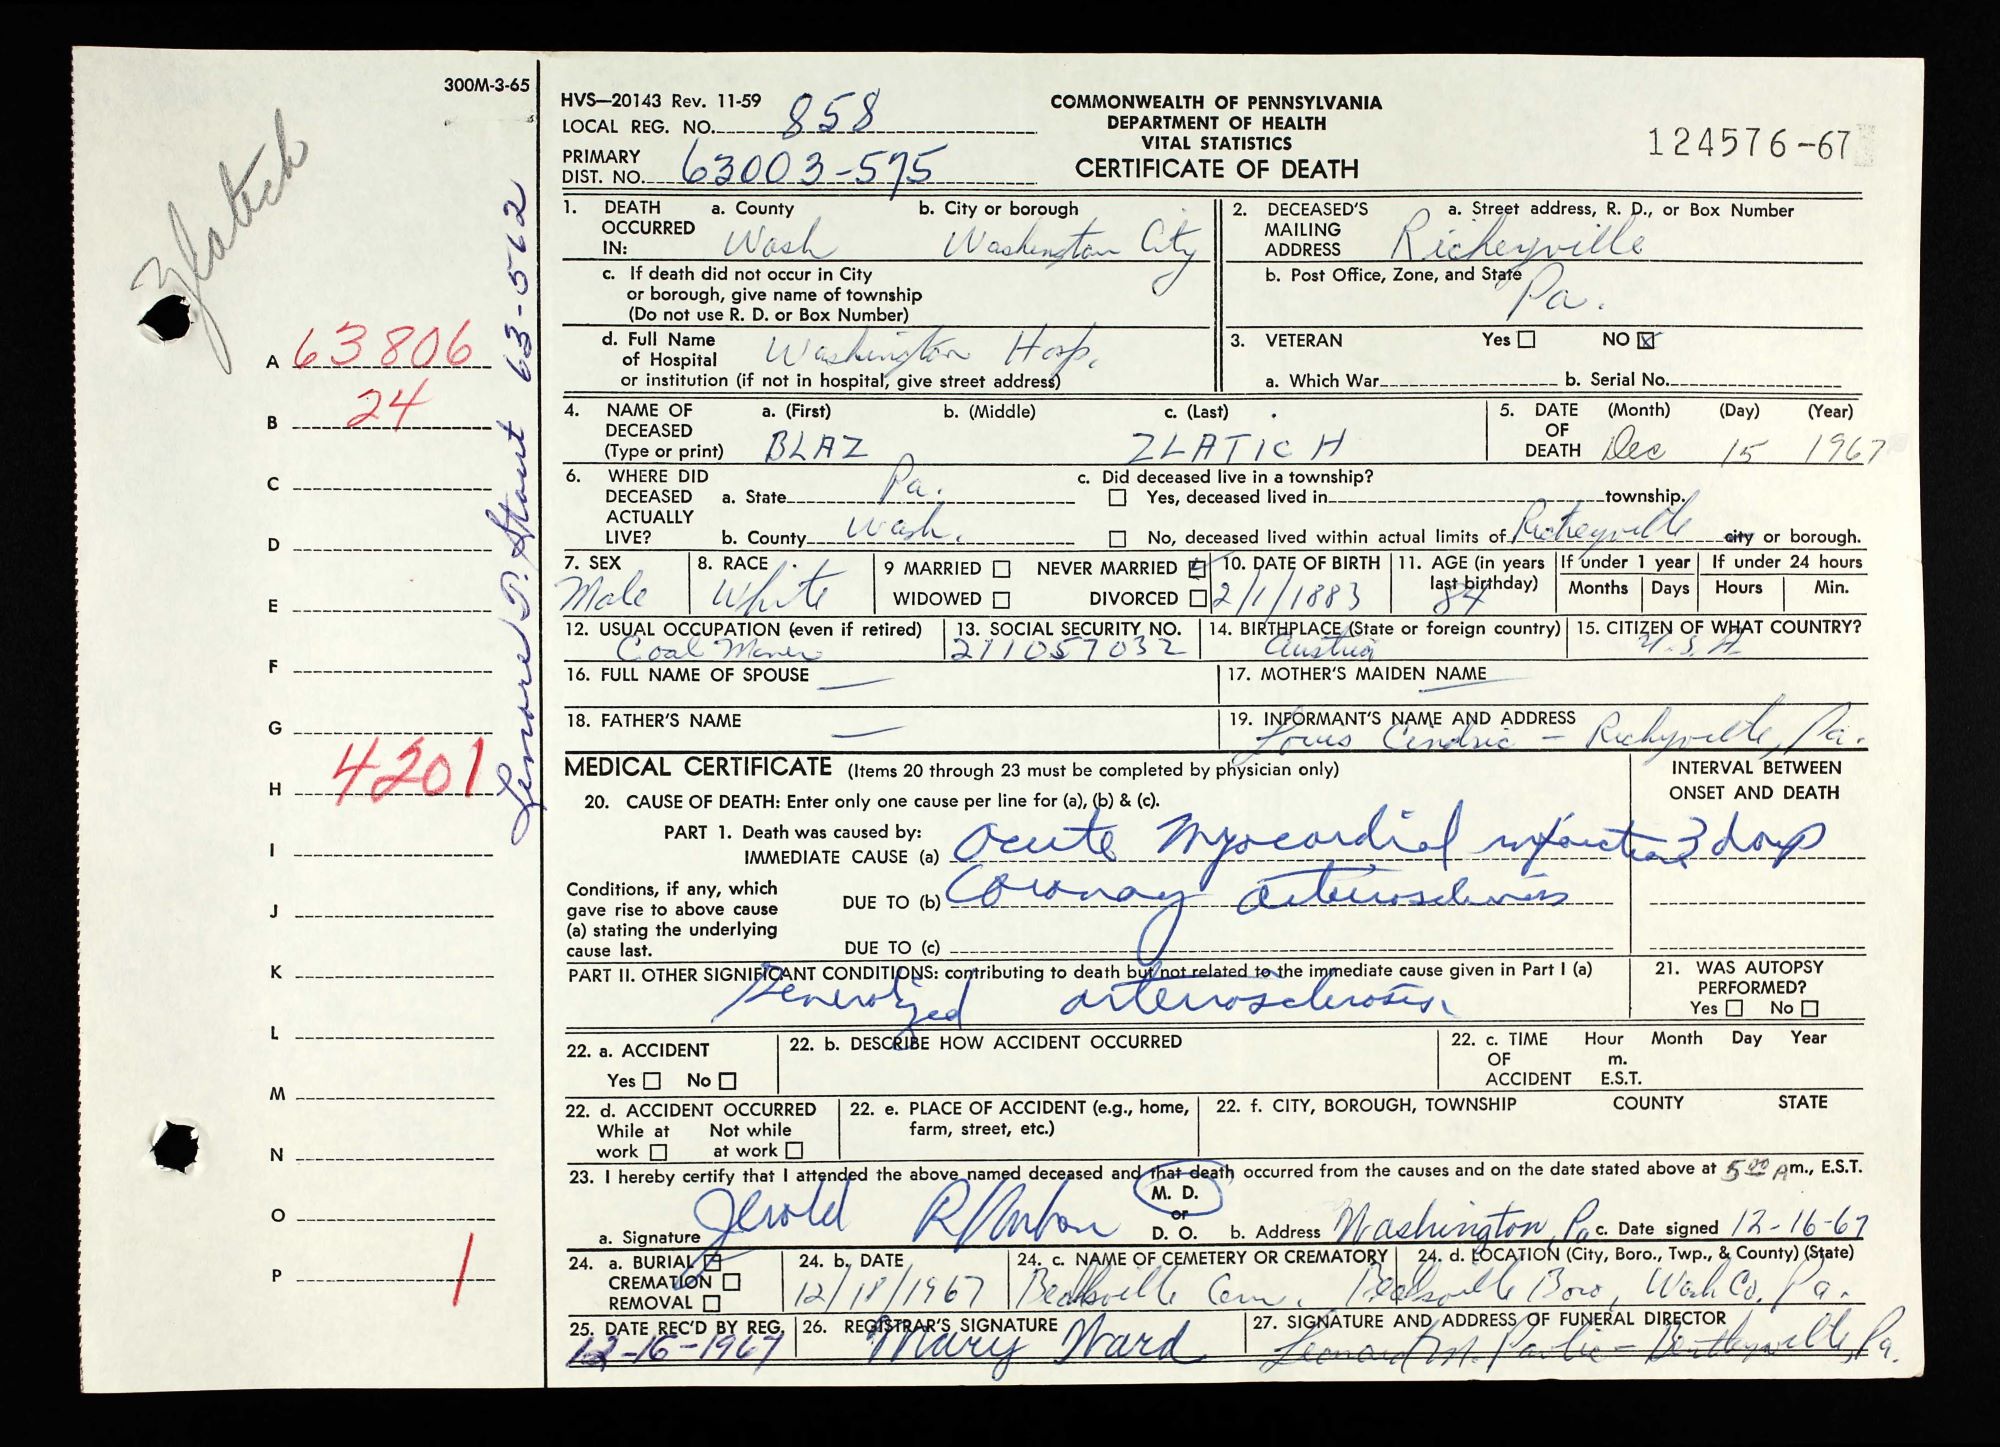 300M-3-65
Zlatich
A 63806
B 24
C
D
E
F
G
H 4201
I
J
K
L
M
N
O
P 1
63-562
HVS—20143 Rev. 11-59
LOCAL REG. NO. 858
PRIMARY
DIST. NO. 63003-575
COMMONWEALTH OF PENNSYLVANIA
DEPARTMENT OF HEALTH
VITAL STATISTICS
CERTIFICATE OF DEATH
124576-67
1. DEATH OCCURRED IN: a. County Wash b. City or borough Washington City
c. If death did not occur in City
or borough, give name of township
(Do not use R. D. or Box Number)
d. Full Name of Hospital Washington Hosp.
or institution (if not in hospital, give street address)
2. DECEASED'S MAILING ADDRESS a. Street address, R. D., or Box Number Richeyville
b. Post Office, Zone, and State Pa.
3. VETERAN Yes NO
a. Which War b. Serial No.
4. NAME OF DECEASED (Type or print) a. (First) BLAZ b. (Middle) c. (Last) ZLATICH
5. DATE OF DEATH (Month) Dec (Day) 15 (Year) 1967
6. WHERE DID DECEASED ACTUALLY LIVE? a. State Pa.
b. County Wash.
c. Did deceased live in a township?
Yes, deceased lived in township.
No, deceased lived within actual limits of Richeyville city or borough.
7. SEX Male
8. RACE White
9 MARRIED NEVER MARRIED
WIDOWED DIVORCED
10. DATE OF BIRTH 2/1/1883
11. AGE (in years last birthday) 84
If under 1 year Months Days
If under 24 hours Hours Min.
12. USUAL OCCUPATION (even if retired) Coal Miner
13. SOCIAL SECURITY NO. 211057032
14. BIRTHPLACE (State or foreign country) Austria
15. CITIZEN OF WHAT COUNTRY? U.S.A.
16. FULL NAME OF SPOUSE —
17. MOTHER'S MAIDEN NAME —
18. FATHER'S NAME —
19. INFORMANT'S NAME AND ADDRESS Louis Cendric — Richeyville, Pa.
MEDICAL CERTIFICATE (Items 20 through 23 must be completed by physician only)
INTERVAL BETWEEN
ONSET AND DEATH
20. CAUSE OF DEATH: Enter only one cause per line for (a), (b) & (c).
PART 1. Death was caused by:
IMMEDIATE CAUSE (a) Acute Myocardial infarction 3 days
Conditions, if any, which
gave rise to above cause
(a) stating the underlying
cause last.
DUE TO (b) Coronary arteriosclerosis
DUE TO (c)
PART II. OTHER SIGNIFICANT CONDITIONS: contributing to death but not related to the immediate cause given in Part I (a)
Generalized arteriosclerosis
21. WAS AUTOPSY
PERFORMED?
Yes No
22. a. ACCIDENT
Yes No
22. b. DESCRIBE HOW ACCIDENT OCCURRED
22. c. TIME OF ACCIDENT Hour m. E.S.T. Month Day Year
22. d. ACCIDENT OCCURRED
While at work Not while at work
22. e. PLACE OF ACCIDENT (e.g., home,
farm, street, etc.)
22. f. CITY, BOROUGH, TOWNSHIP COUNTY STATE
23. I hereby certify that I attended the above named deceased and that death occurred from the causes and on the date stated above at 5:00 Am., E.S.T.
a. Signature Jerold M. D. or D. O. b. Address Washington, Pa c. Date signed 12-16-67
24. a. BURIAL
CREMATION
REMOVAL
24. b. DATE 12/18/1967
24. c. NAME OF CEMETERY OR CREMATORY Beallsville Cem.
24. d. LOCATION (City, Boro., Twp., & County) (State) Beallsville Boro, Wash Co, Pa.
25. DATE REC'D BY REG. 12-16-1967
26. REGISTRAR'S SIGNATURE Mary Ward
27. SIGNATURE AND ADDRESS OF FUNERAL DIRECTOR Leonard M. — Bentleyville, Pa.